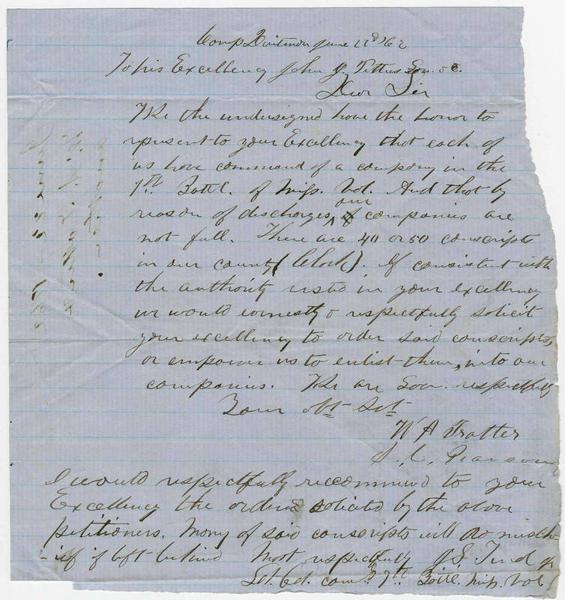 Camp June 11th 62
To his Excellency John J. Pettus Gov. &C.
Dear Sir
We the undersigned have the honor to
represent to your Excellency that each of
us have command of a company in the
7th Battl. of Miss. Vol. And that by
reason of discharges, our companies are
not full. There are 40 or 50 conscripts
in our county (Clark). If consistent with
the authority vested in your excellency
we would earnestly & respectfully solicit
your excellency to order said conscripts,
or empower us to enlist them, into our
companies. We are Gov. respectfully
Your Obt Svt
W A Trotter
S. C. Pearson
I would respectfully recommend to your
Excellency the orders solicited by the above
petitioners. Many of said conscripts will do misch-
-ief if left behind Most respectfully J. S. Terral
Lt. Col. com'd 7th Batt. Miss. Vol.